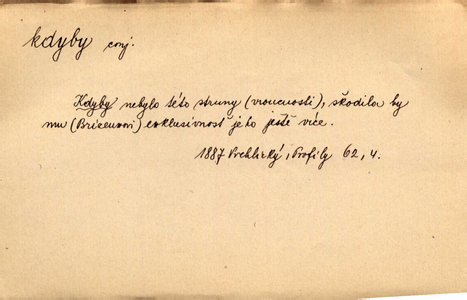 kdyby conj.
Kdyby nebylo této struny (vroucnosti), škodila by
mu (Brizeuxovi) exklusivnost jeho ještě více.
1887 Vrchlický, Profily 62, 4.